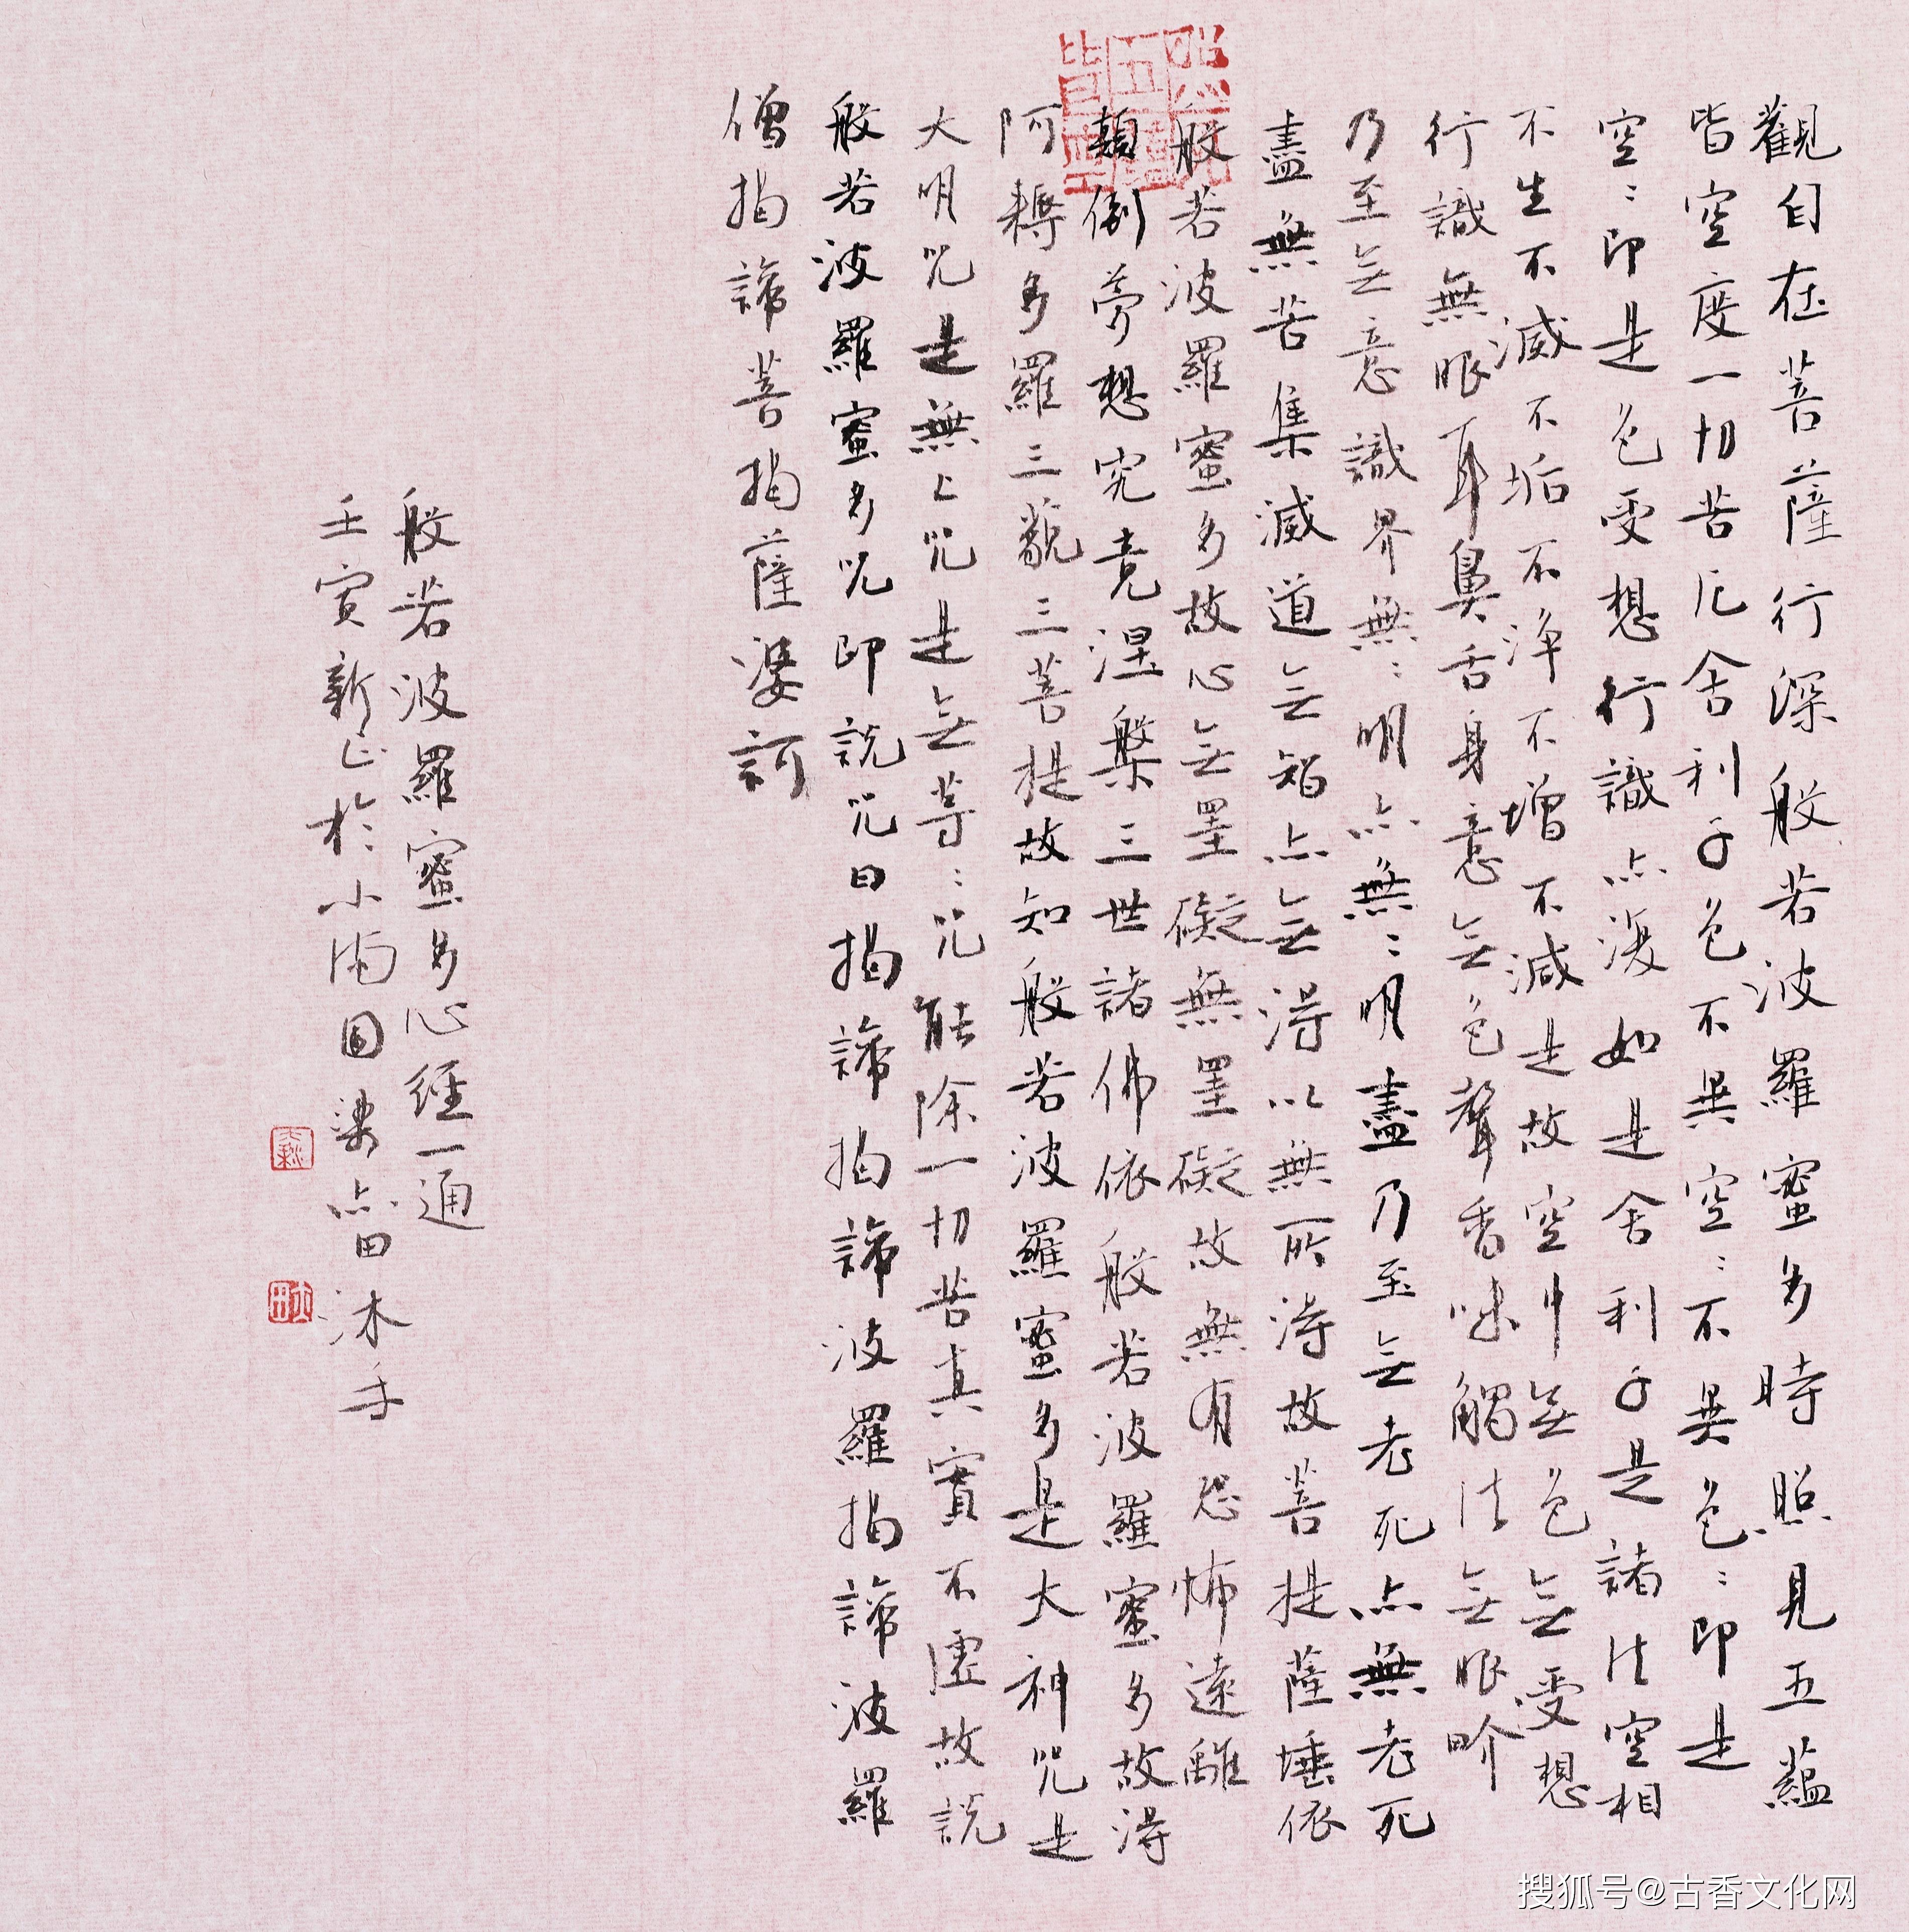 觀自在菩薩行深般若波羅蜜多時照見五蘊
皆空度一切苦厄舍利子色不異空〻不異色〻即是
空〻即是色受想行識亦復如是舍利子是諸法空相
不生不滅不垢不淨不增不減是故空中無色無受想
行識無眼耳鼻舌身意無色聲香味觸法無眼界
乃至無意識界無〻明亦無〻明盡乃至無老死亦無老死
盡無苦集滅道無智亦無得以無所得故菩提薩埵依
般若波羅蜜多故心無罣礙無罣礙故無有恐怖遠離
顛倒夢想究竟涅槃三世諸佛依般若波羅蜜多故得
阿耨多羅三藐三菩提故知般若波羅蜜多是大神咒是
大明咒是無上咒是無等〻咒能除一切苦真實不虛故說
般若波羅蜜多咒即說咒曰揭諦揭諦波羅揭諦波羅
僧揭諦菩提薩婆訶
般若波羅蜜多心經一通
壬寅新正於小雨園梁亦田沐手
照見五蘊皆空
搜狐号@古香文化网